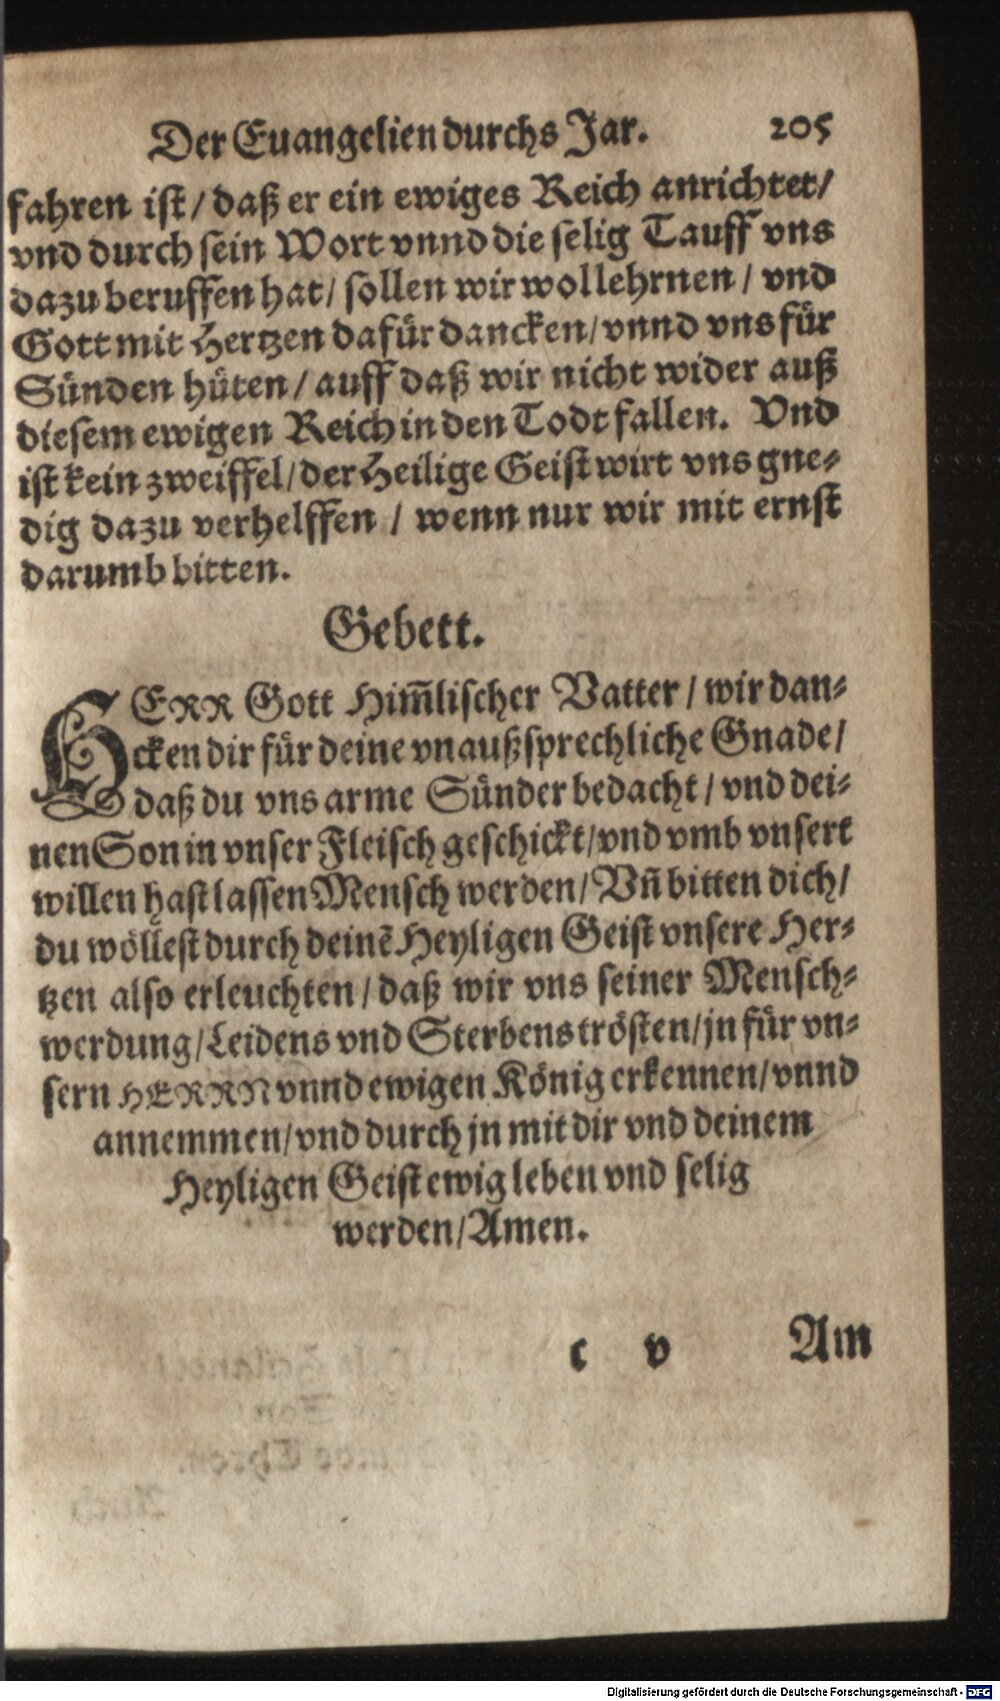 Der Euangelien durchs Jar. 205
fahren ist / daß er ein ewiges Reich anrichtet /
vnd durch sein Wort vnnd die selig Tauff vns
dazu beruffen hat / sollen wir wol lehrnen / vnd
Gott mit Hertzen dafür dancken / vnnd vns für
Sünden hüten / auff daß wir nicht wider auß
diesem ewigen Reich in den Todt fallen. Vnd
ist kein zweiffel / der Heilige Geist wirt vns gne-
dig dazu verhelffen / wenn nur wir mit ernst
darumb bitten.
Gebett.
HERR Gott Him̅lischer Vatter / wir dan-
cken dir für deine vnaußsprechliche Gnade /
daß du vns arme Sünder bedacht / vnd dei-
nen Son in vnser Fleisch geschickt / vnd vmb vnsert
willen hast lassen Mensch werden / Vn̅ bitten dich /
du wöllest durch deinē Heyligen Geist vnsere Her-
tzen also erleuchten / daß wir vns seiner Mensch-
werdung / Leidens vnd Sterbens trösten / jn für vn-
sern HERRN vnnd ewigen König erkennen / vnnd
annemmen / vnd durch jn mit dir vnd deinem
Heyligen Geist ewig leben vnd selig
werden / Amen.
c v Am
Digitalisierung gefördert durch die Deutsche Forschungsgemeinschaft - DFG